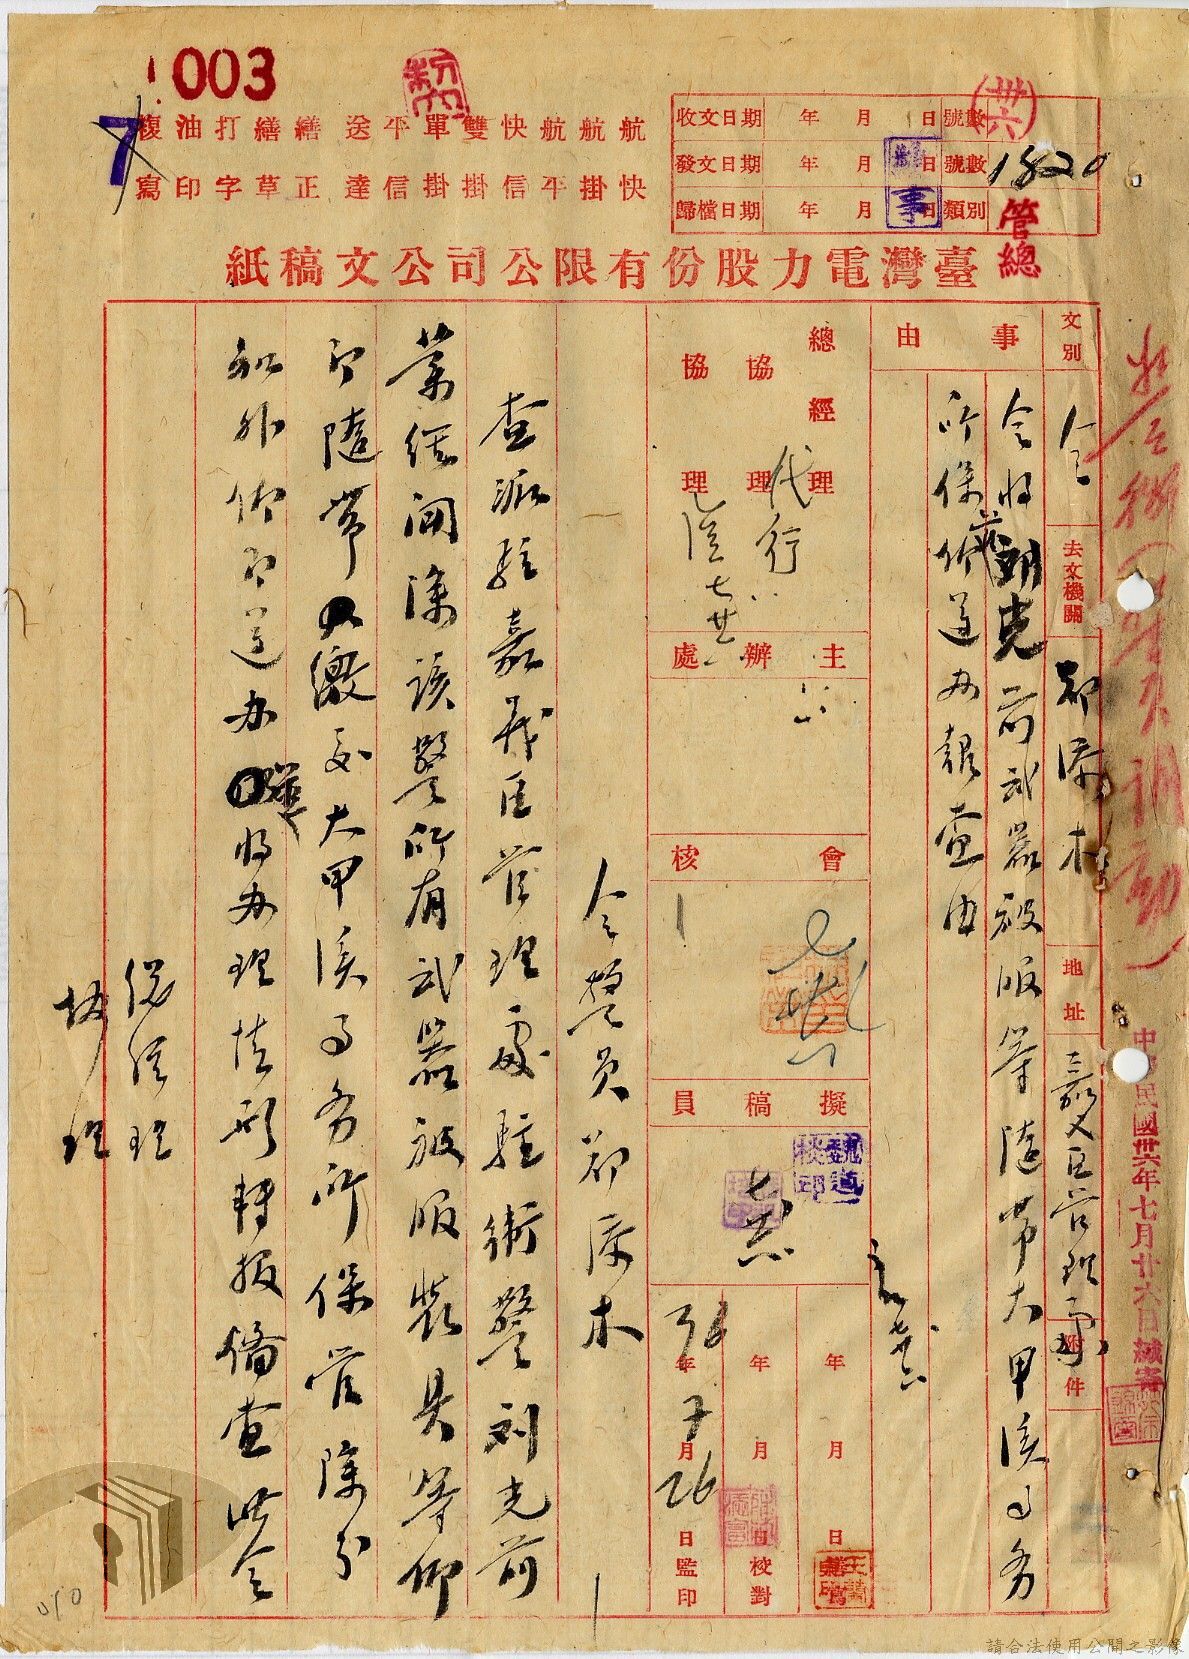 003
7
航快
航掛
航平
快信
雙掛
單掛
平信
送達
繕正
繕草
打字
油印
複寫
收文日期 年 月 日 號數
發文日期 年 月 日 號數
歸檔日期 年 月 日 類別
卅六
1820
管總
臺灣電力股份有限公司公文稿紙
文別
令
去文機關
鄭添木
地址
嘉义区管理處
附件
事由
令將劉光前武器被服等隨帶大甲溪工务
所保管仰遵办報查由
總經理
協理
協理
代行
主辦處
會核
擬稿員
七廿六
年 月 日
年 月 日校對
36年7月26日監印
令警員鄭添木
查派駐嘉義区管理處駐衛警刘光前
業經開除該警所有武器被服裝具等仰
即隨帶繳交大甲溪工务所保管除分
知外仰即遵办將办理情形轉报备查此令
總經理
協理
中華民國卅六年七月廿六日繕寫
010
請合法使用公開之影像